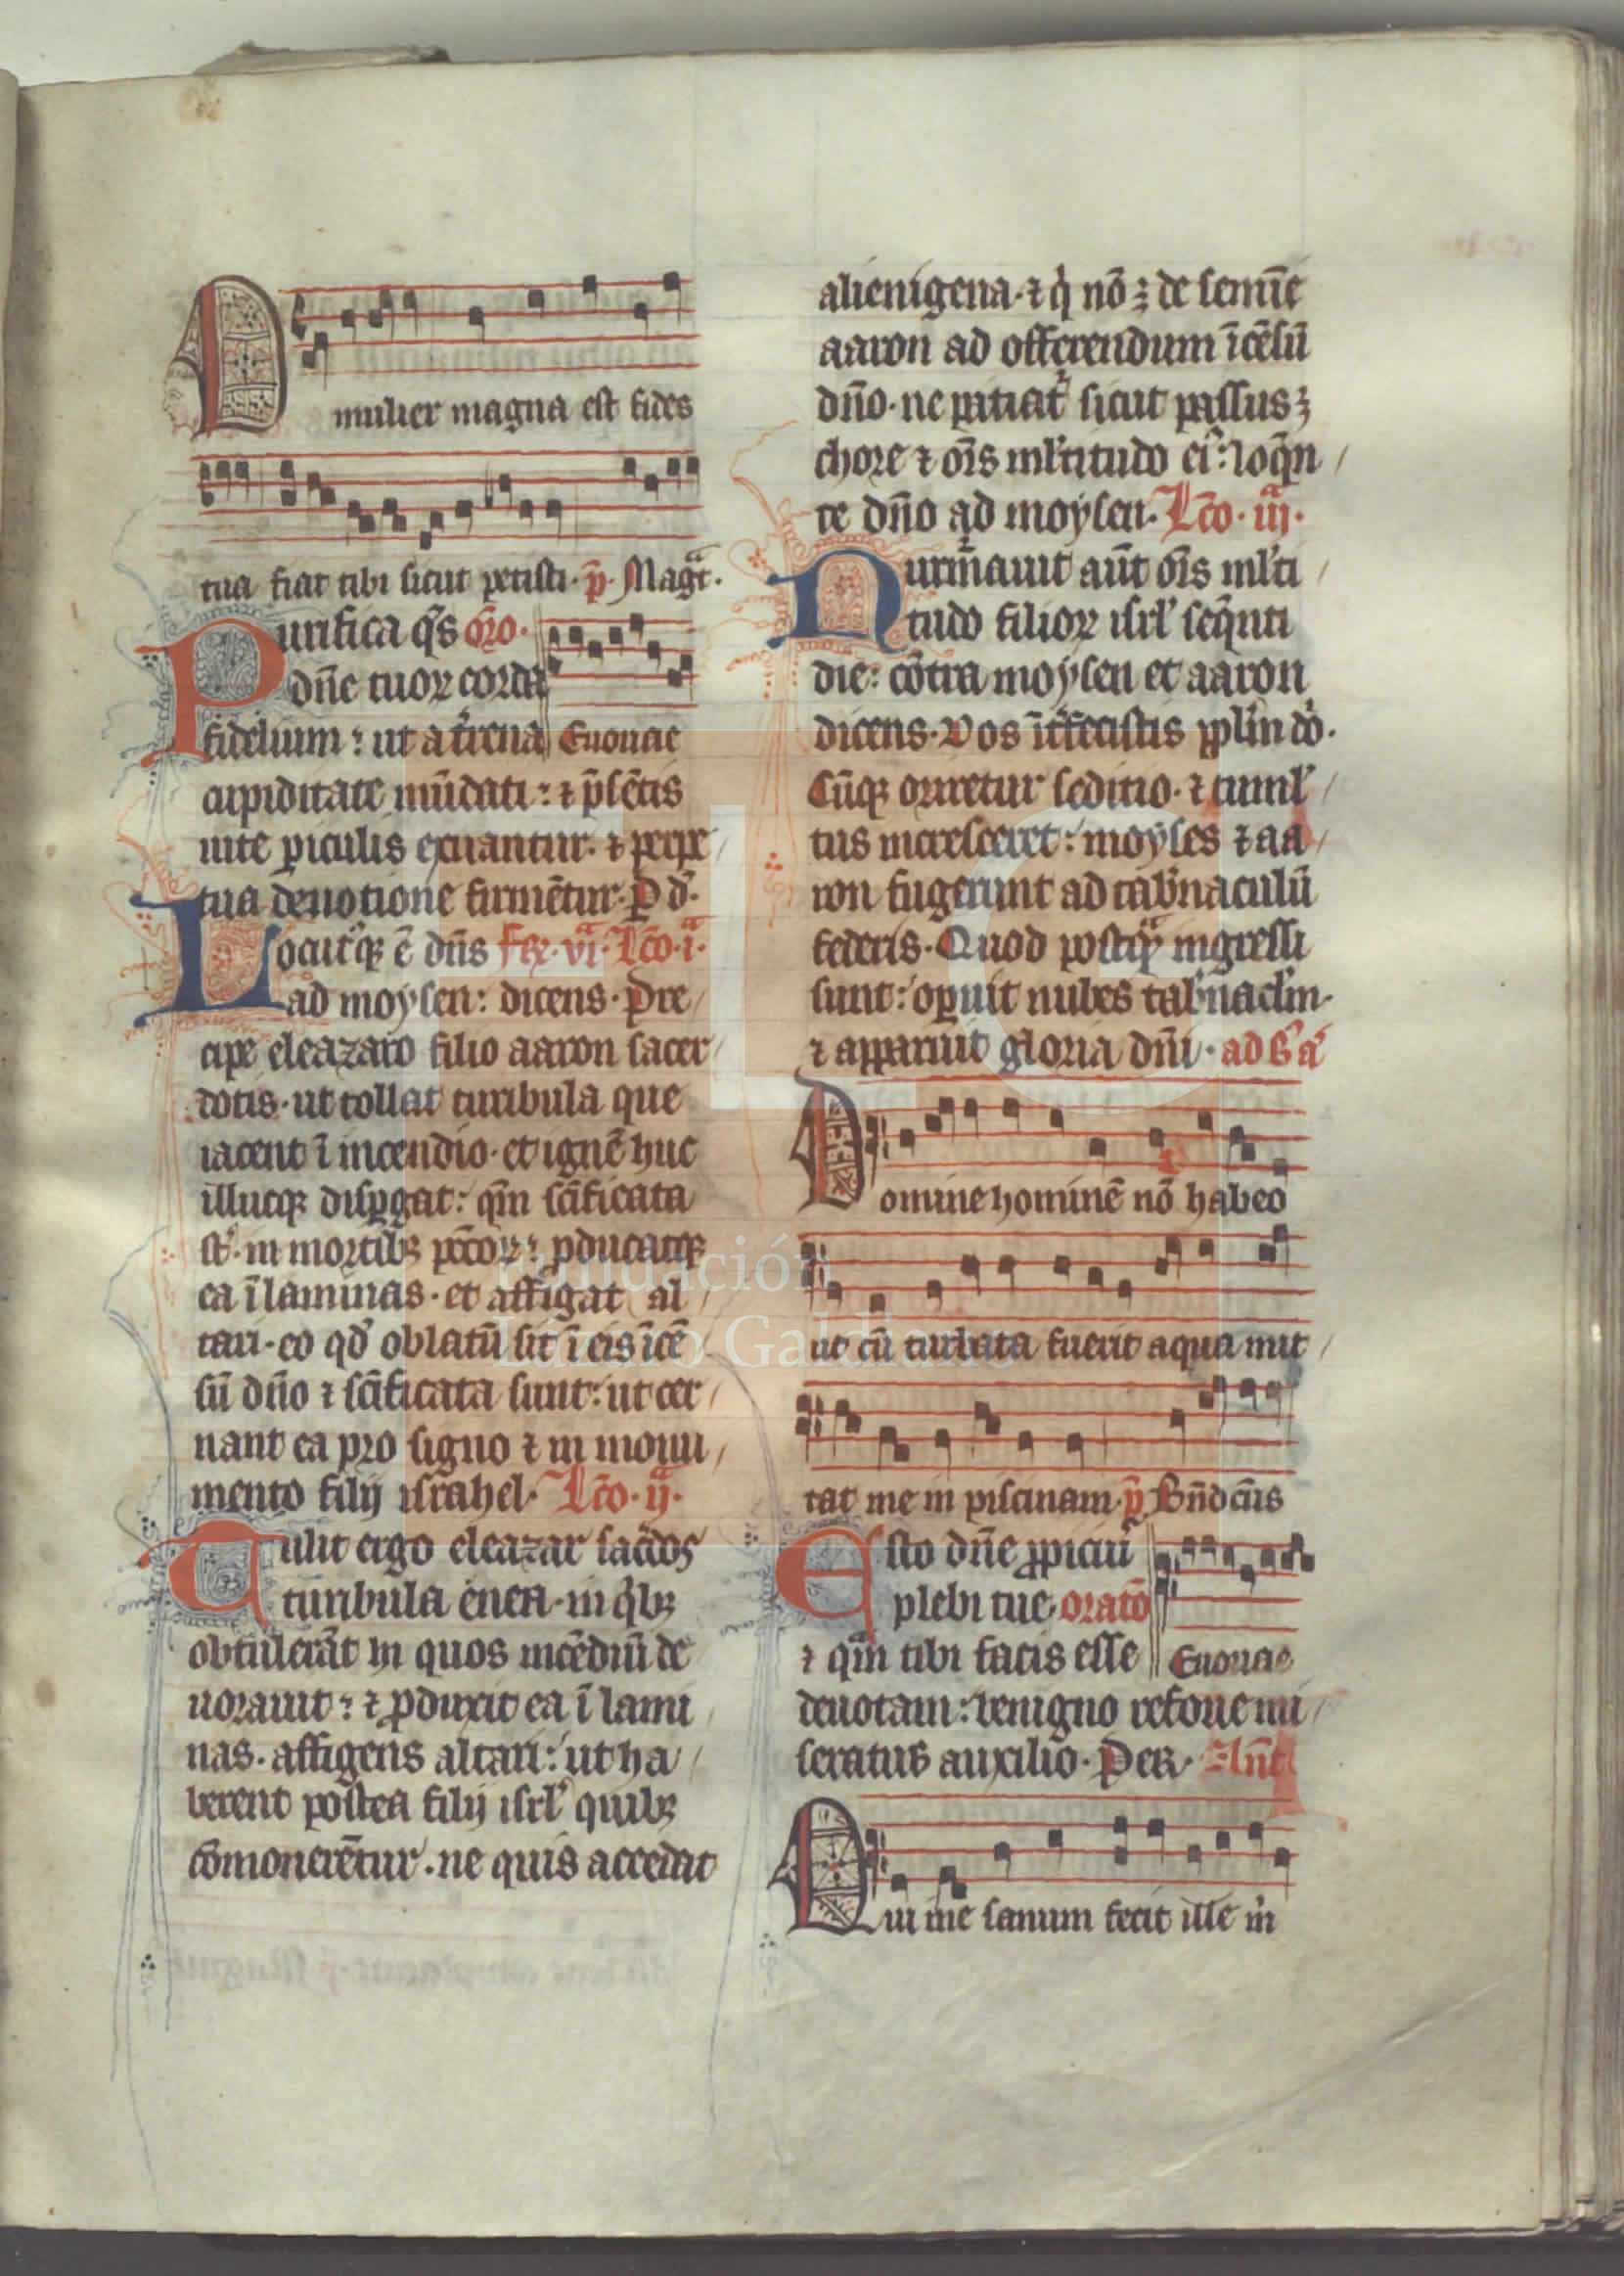 O
mulier magna est fides
tua fiat tibi sicut petisti. p̄. Magͣt.
Purifica q̄s oꝛ̄o.
dn̄e tuoꝝ corda
fidelium: ut a t̾rena Euouae
cupiditate mūdati: ⁊ p̄sētis
uite ꝑiculis exuantur. ⁊ perpe
tua deuotione firmētur. P d̾.
Locut᷒qꝫ ē dn̄s Fẽꝝ. vi. Lc̄o. i.
ad moysen: dicens. Pre
cipe eleazaro filio aaron sacer
dotis. ut tollat turibula que
iacent ī incendio. et ignē huc
illucqꝫ disꝑgat: qm̄ sc̄ificata
st̄. in mortibꝫ pcc̄oꝝ: ꝓducatqꝫ
ea ī laminas. et affigat al
tari. eo qd̾ oblatū sit ī eis īcē
sū dn̄o ⁊ sc̄ificata sunt: ut cer
nant ea pro signo ⁊ in monu
mento filij israhel. Lc̄o. ij.
Tulit ergo eleazar sac̄dos
turibula enea. in qͥbꝫ
obtulerāt hi quos incēdiū de
uorauit: ⁊ ꝓduxit ea ī lami
nas. affigens altari: ut ha
berent postea filij isrl̾ quibꝫ
cōmonerētur. ne quis accedat
alienigena. ⁊ qͥ nō ē de semīe
aaron ad offerendum īcēsū
dn̄o. ne patiat᷑ sicut passus ē
chore ⁊ oīs ml̾titudo ei᷒: loqn̄
te dn̄o ad moysen. Lc̄o. iij.
Murm̄auit aūt oīs ml̾ti
tudo filioꝝ isrl̾ seq̄nti
die: cōtra moysen et aaron
dicens. Vos īt̾fecistis ppl̾m dō.
Cūqꝫ oriretur seditio. ⁊ tuml̾
tus incresceret: moyses ⁊ aa
ron fugerunt ad tab̾naculū
federis. Quod postqͣ ingressi
sunt: oꝑuit nubes tab̾nacl̾m.
⁊ apparuit gloria dn̄i. ad B̾ a̾
Domine hominē nō habeo
ut cū turbata fuerit aqua mit
tat me in piscinam. p̄. Bn̄dc̄us
Esto dn̄e ꝓpiciu᷒
plebi tue oratō
⁊ qm̄ tibi facis esse Euouae
deuotam: benigno refoue mi
seratus auxilio. Per. An̄t
Qui me sanum fecit ille m̄
Fundación
Lázaro Galdiano